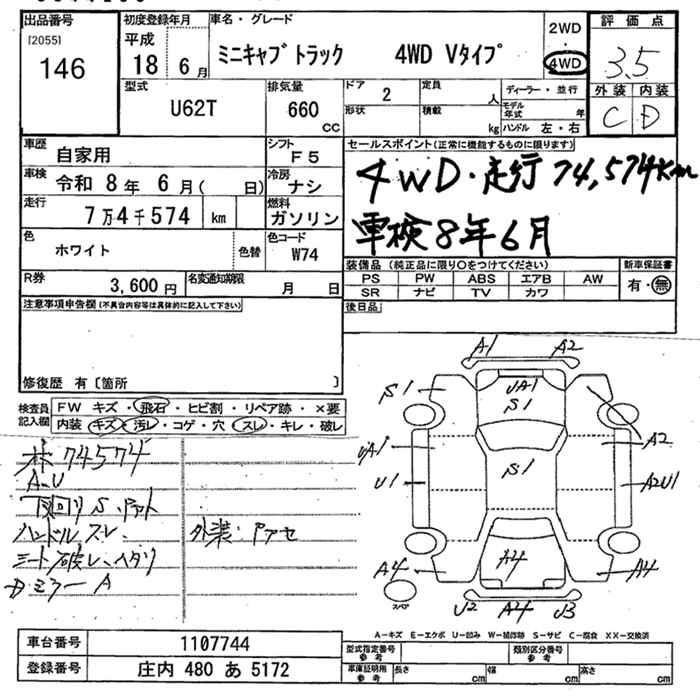 出品番号 初度登録年月 車名・グレード 2WD 評価点
[2055] 平成 ・
146 18 6月 ミニキャブトラック 4WD Vタイプ 4WD 3.5
型式 排気量 ドア 2 定員 人 ディーラー・並行 外装 内装
U62T 660 CC 形状 積載 kg モデル年式 年 C D
ハンドル 左・右
車歴 自家用 シフト F5 セールスポイント(正常に機能するものに限ります)
車検 令和 8年 6月( 日) 冷房 ナシ 4WD・走行 74,574Km
走行 7万4千574 km 燃料 ガソリン 車検8年6月
色 ホワイト 色替 色コード W74
装備品(純正品に限り○をつけてください) 新車保証書
R券 3,600円 名変通知期限 月 日 PS PW ABS エアB AW 有・無
SR ナビ TV カワ
注意事項申告欄(不具合内容等は具体的に記入して下さい) 後日品
修復歴 有〔箇所 〕
検査員記入欄 FW キズ・飛石・ヒビ割・リペア跡・×要
内装 キズ・汚レ・コゲ・穴・スレ・キレ・破レ
74574
A.U
下回り S.
ハンドル スレ
外装:
シート破レ.ヘタリ
ミラー A
A1 A2
S1 UA1 S1
UA1 A2
U1 S1 A2U1
A4 A4 A4
スペア U2 A4 U3
A−キズ E−エクボ U−凹ミ W−補修跡 S−サビ C−腐食 XX−交換済
車台番号 1107744 型式指定番号 参考 類別区分番号 参考
登録番号 庄内 480 あ 5172 車庫証明用 参考 長さ cm 幅 cm 高さ cm